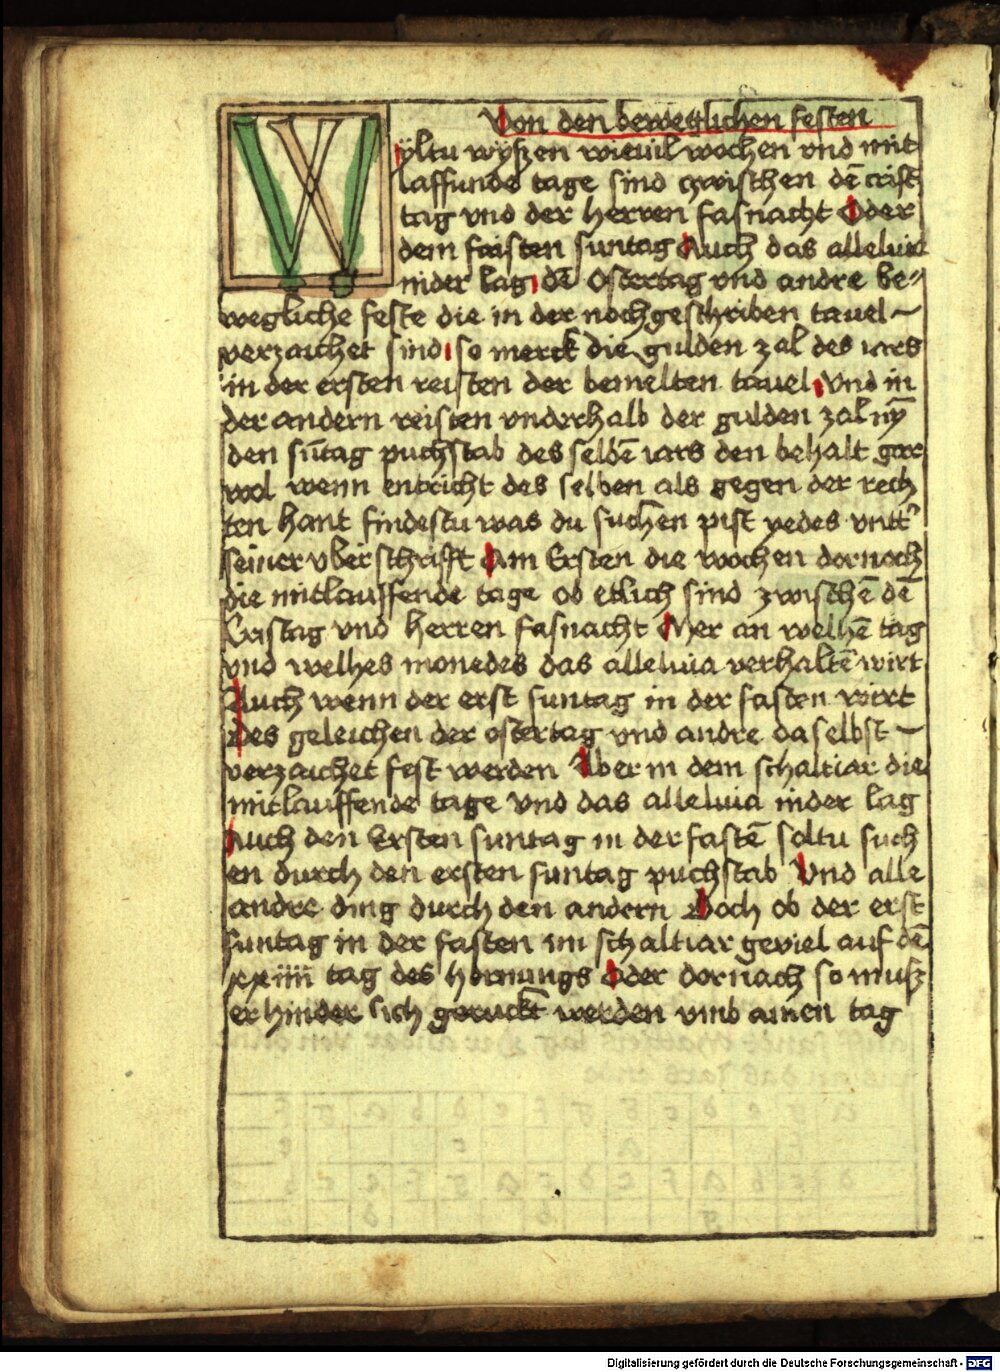 Von den beweglichen festen
W
yltu wyssen wieuil wochen vnd mit
laffunde tage sind czwischen dē crist
tag vnd der herren fasnacht Oder
dem fristen suntag Auch das alleluia
nider lag dē Ostertag vnd andre be⸗
wegliche feste die in der nochgeschriben tauel
verzaichet sind so merck die gulden zal des iars
in der ersten reisten der bemelten tauel Vnd in
der andern reisten vnderhalb der gulden zal nȳ
den sūtag puchstab des selbē iars den behalt gar
wol wenn entricht des selben als gegen der rech
ten hant findestu was du suchen pist yedes vntt'
seiner vberschrifft Am Ersten die wochen dornoch
die mitlauffende tage ob etlich sind zwischē dē
Cristag vnd herren fasnacht Mer an welhē tag
vnd welhes monedes das alleluia verhaltē wirt
Auch wenn der erst suntag in der fasten wirt
Des geleichen der ostertag vnd andre daselbst
verzaichet fest werden Aber in dem schaltiar die
mitlauffende tage vnd das alleluia nider lag
Auch den Ersten suntag in der fastē soltu such
en durch den ersten suntag puchstab Vnd alle
andre ding durch den andern Doch ob der erst
suntag in der fasten im schaltiar geuiel auf dē
xxiiii tag des hornungs Oder dornach so muß
er hinder sich geruckt werden vmb ainen tag
Digitalisierung gefördert durch die Deutsche Forschungsgemeinschaft - DFG